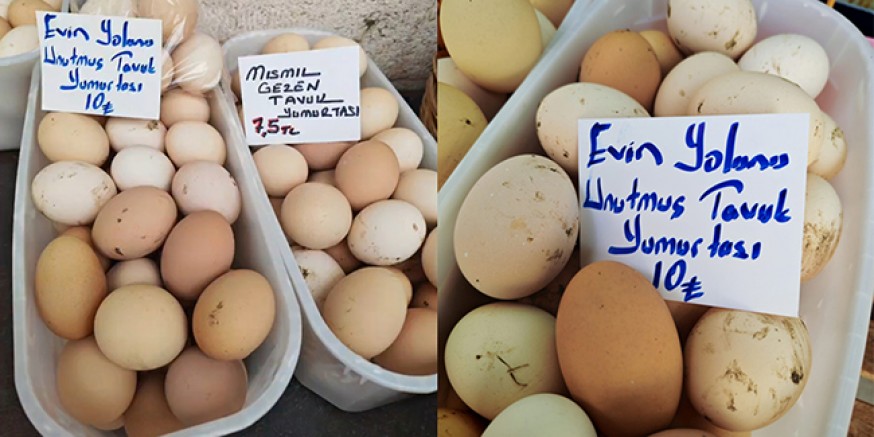 Evin Yolunu
Unutmuş Tavuk
Yumurtası
10₺
MISMIL
GEZEN
TAVUK
YUMURTASI
7,5 TL
Evin Yolunu
Unutmuş Tavuk
Yumurtası
10₺